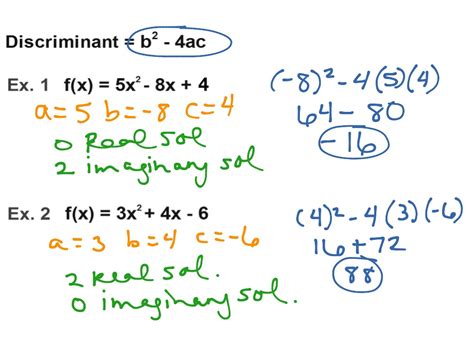 Discriminant = b² - 4ac
Ex. 1 f(x) = 5x² - 8x + 4
a = 5 b = -8 c = 4
0 Real Sol
2 imaginary sol
(-8)² - 4(5)(4)
64 - 80
-16
Ex. 2 f(x) = 3x² + 4x - 6
a = 3 b = 4 c = -6
2 Real Sol.
0 imaginary sol.
(4)² - 4(3)(-6)
16 + 72
88